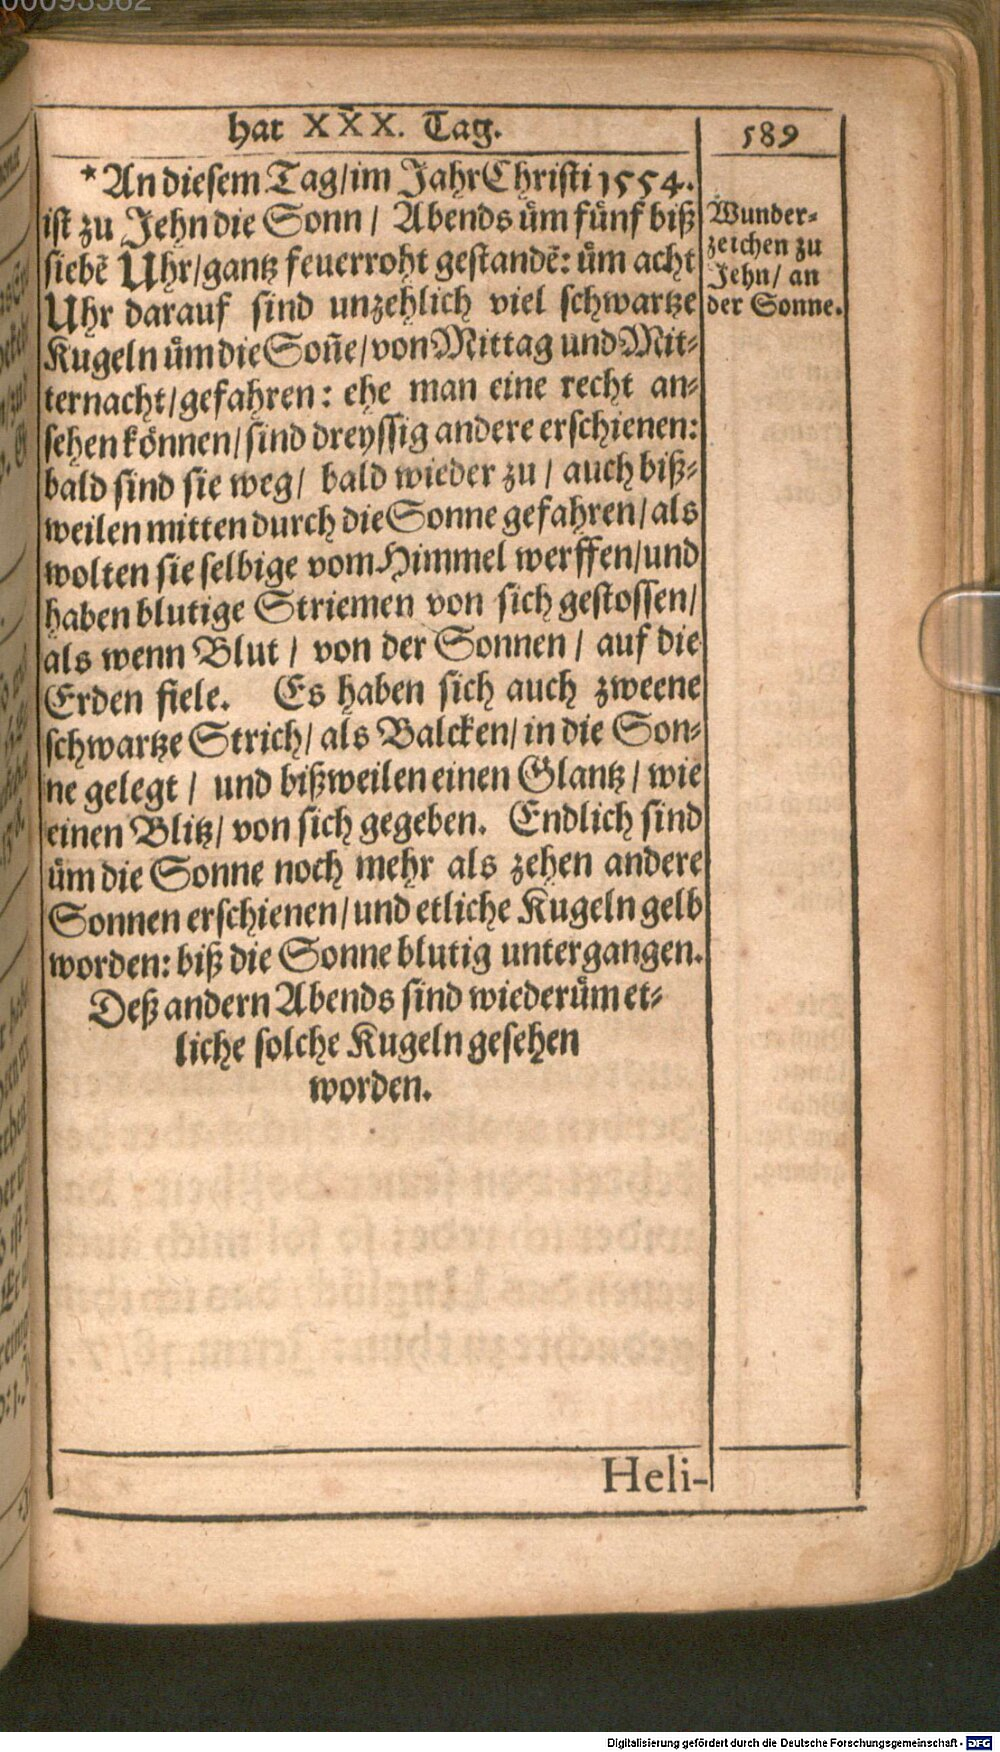 hat XXX. Tag.
589
*An diesem Tag/im Jahr Christi 1554.
ist zu Jehn die Sonn / Abends üm fünf biß
siebẽ Uhr/gantz feuerroht gestandẽ: üm acht
Uhr darauf sind unzehlich viel schwartze
Kugeln üm die Soñe/von Mittag und Mit-
ternacht/gefahren: ehe man eine recht an-
sehen können/sind dreyssig andere erschienen:
bald sind sie weg/ bald wieder zu / auch biß-
weilen mitten durch die Sonne gefahren/als
wolten sie selbige vom Himmel werffen/und
haben blutige Striemen von sich gestossen/
als wenn Blut / von der Sonnen / auf die
Erden fiele. Es haben sich auch zweene
schwartze Strich/ als Balcken/ in die Son-
ne gelegt / und bißweilen einen Glantz / wie
einen Blitz/ von sich gegeben. Endlich sind
üm die Sonne noch mehr als zehen andere
Sonnen erschienen/und etliche Kugeln gelb
worden: biß die Sonne blutig untergangen.
Deß andern Abends sind wiederüm et-
liche solche Kugeln gesehen
worden.
Wunder-
zeichen zu
Jehn/ an
der Sonne.
Heli-
Digitalisierung gefördert durch die Deutsche Forschungsgemeinschaft - DFG